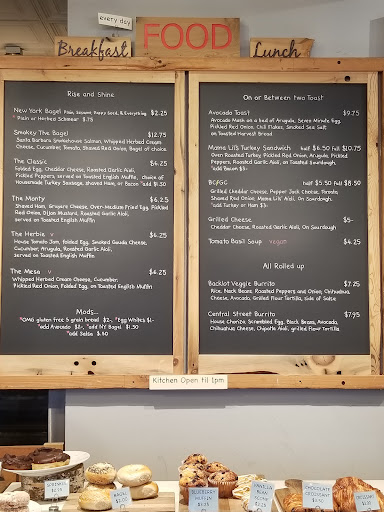 every day
Breakfast
FOOD
Lunch
Rise and Shine
New York Bagel Plain, Sesame, Poppy Seed, & Everything $2.25
Plain or Herbed Schmear $.75
Smokey The Bagel $12.75
Santa Barbara Smokehouse Salmon, Whipped Herbed Cream
Cheese, Cucumber, Tomato, Shaved Red Onion, Bagel of choice.
The Classic $6.25
Folded Egg, Cheddar Cheese, Roasted Garlic Aioli,
Pickled Peppers, served on Toasted English Muffin, choice of
Housemade Turkey Sausage, shaved Ham, or Bacon *add $1.50
The Monty $6.25
Shaved Ham, Gruyere Cheese, Over-Medium Fried Egg, Pickled
Red Onion, Dijon Mustard, Roasted Garlic Aioli,
served on Toasted English Muffin
The Herbie v $6.25
House Tomato Jam, Folded Egg, Smoked Gouda Cheese,
Cucumber, Arugula, Roasted Garlic Aioli,
served on Toasted English Muffin.
The Mesa v $6.25
Whipped Herbed Cream Cheese, Cucumber
Pickled Red Onion, Folded Egg, on Toasted English Muffin
Mods...
*OMG gluten free 5 grain bread $2-, *Egg Whites $1-
*add Avocado $2-, *add NY Bagel $1.50
*add Salsa $.50
On or Between two Toast
Avocado Toast $9.75
Avocado Mash on a bed of Arugula, Seven Minute Egg,
Pickled Red Onion, Chili Flakes, Smoked Sea Salt
on Toasted Harvest Bread
Mama Lil's Turkey Sandwich half $6.50 full $10.75
Oven Roasted Turkey, Pickled Red Onion, Arugula, Pickled
Peppers, Roasted Garlic Aioli, on Toasted Sourdough.
*add Bacon $3-
BC/GC half $5.50 full $8.50
Grilled Cheddar Cheese, Pepper Jack Cheese, Tomato,
Shaved Red Onion, Mama Lils' Aioli, On Sourdough
*add Turkey or Ham $3-
Grilled Cheese $5-
Cheddar Cheese, Roasted Garlic Aioli, On Sourdough
Tomato Basil Soup vegan $4.25
All Rolled up
Backlot Veggie Burrito $7.25
Rice, Black Beans, Roasted Peppers and Onion, Chihuahua
Cheese, Avocado, Grilled Flour Tortilla, side of Salsa
Central Street Burrito $7.95
House Chorizo, Scrambled Egg, Black Beans, Avocado,
Chihuahua Cheese, Chipotle Aioli, grilled Flour Tortilla
Kitchen Open til 1pm
BAGEL
BLUEBERRY
MUFFIN
VANILLA
BEAN
SCONE
CHOCOLATE
CROISSANT
CROISSANT